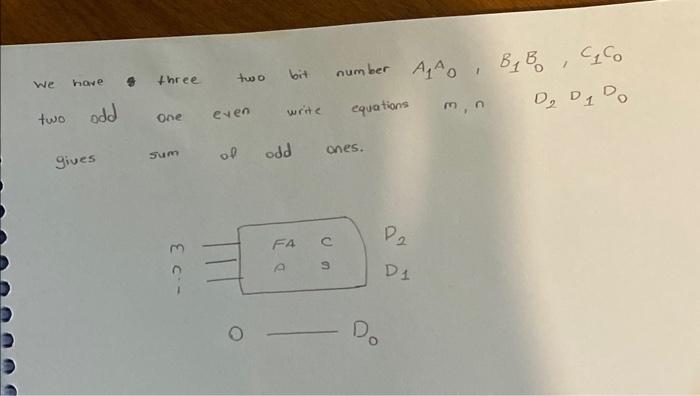 We have three two bit number A₁A₀ , B₁B₀ , C₁C₀
two odd one even write equations m, n D₂ D₁ D₀
gives sum of odd ones.
m FA C D₂
n A S D₁
1
0 D₀